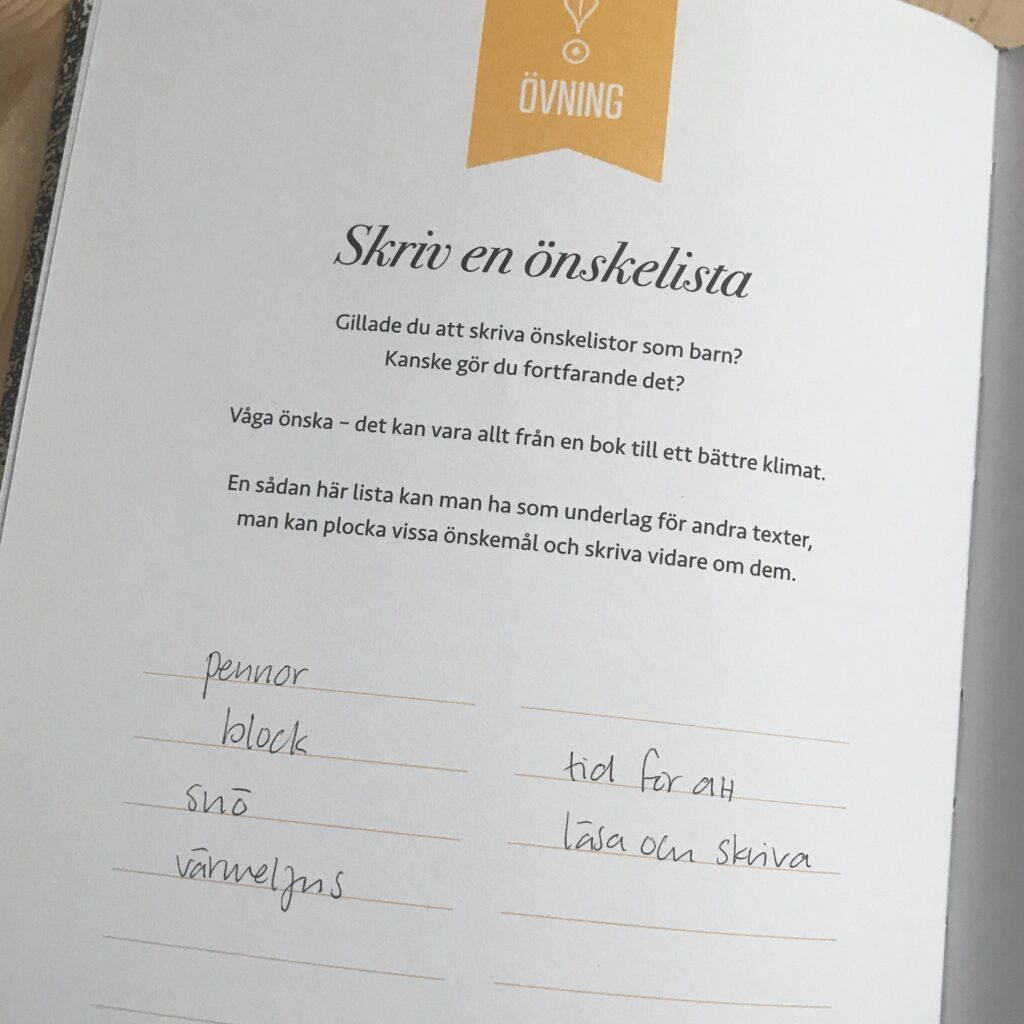 ÖVNING
Skriv en önskelista
Gillade du att skriva önskelistor som barn?
Kanske gör du fortfarande det?
Våga önska – det kan vara allt från en bok till ett bättre klimat.
En sådan här lista kan man ha som underlag för andra texter,
man kan plocka vissa önskemål och skriva vidare om dem.
pennor
block
snö
värmeljus
tid för att
läsa och skriva